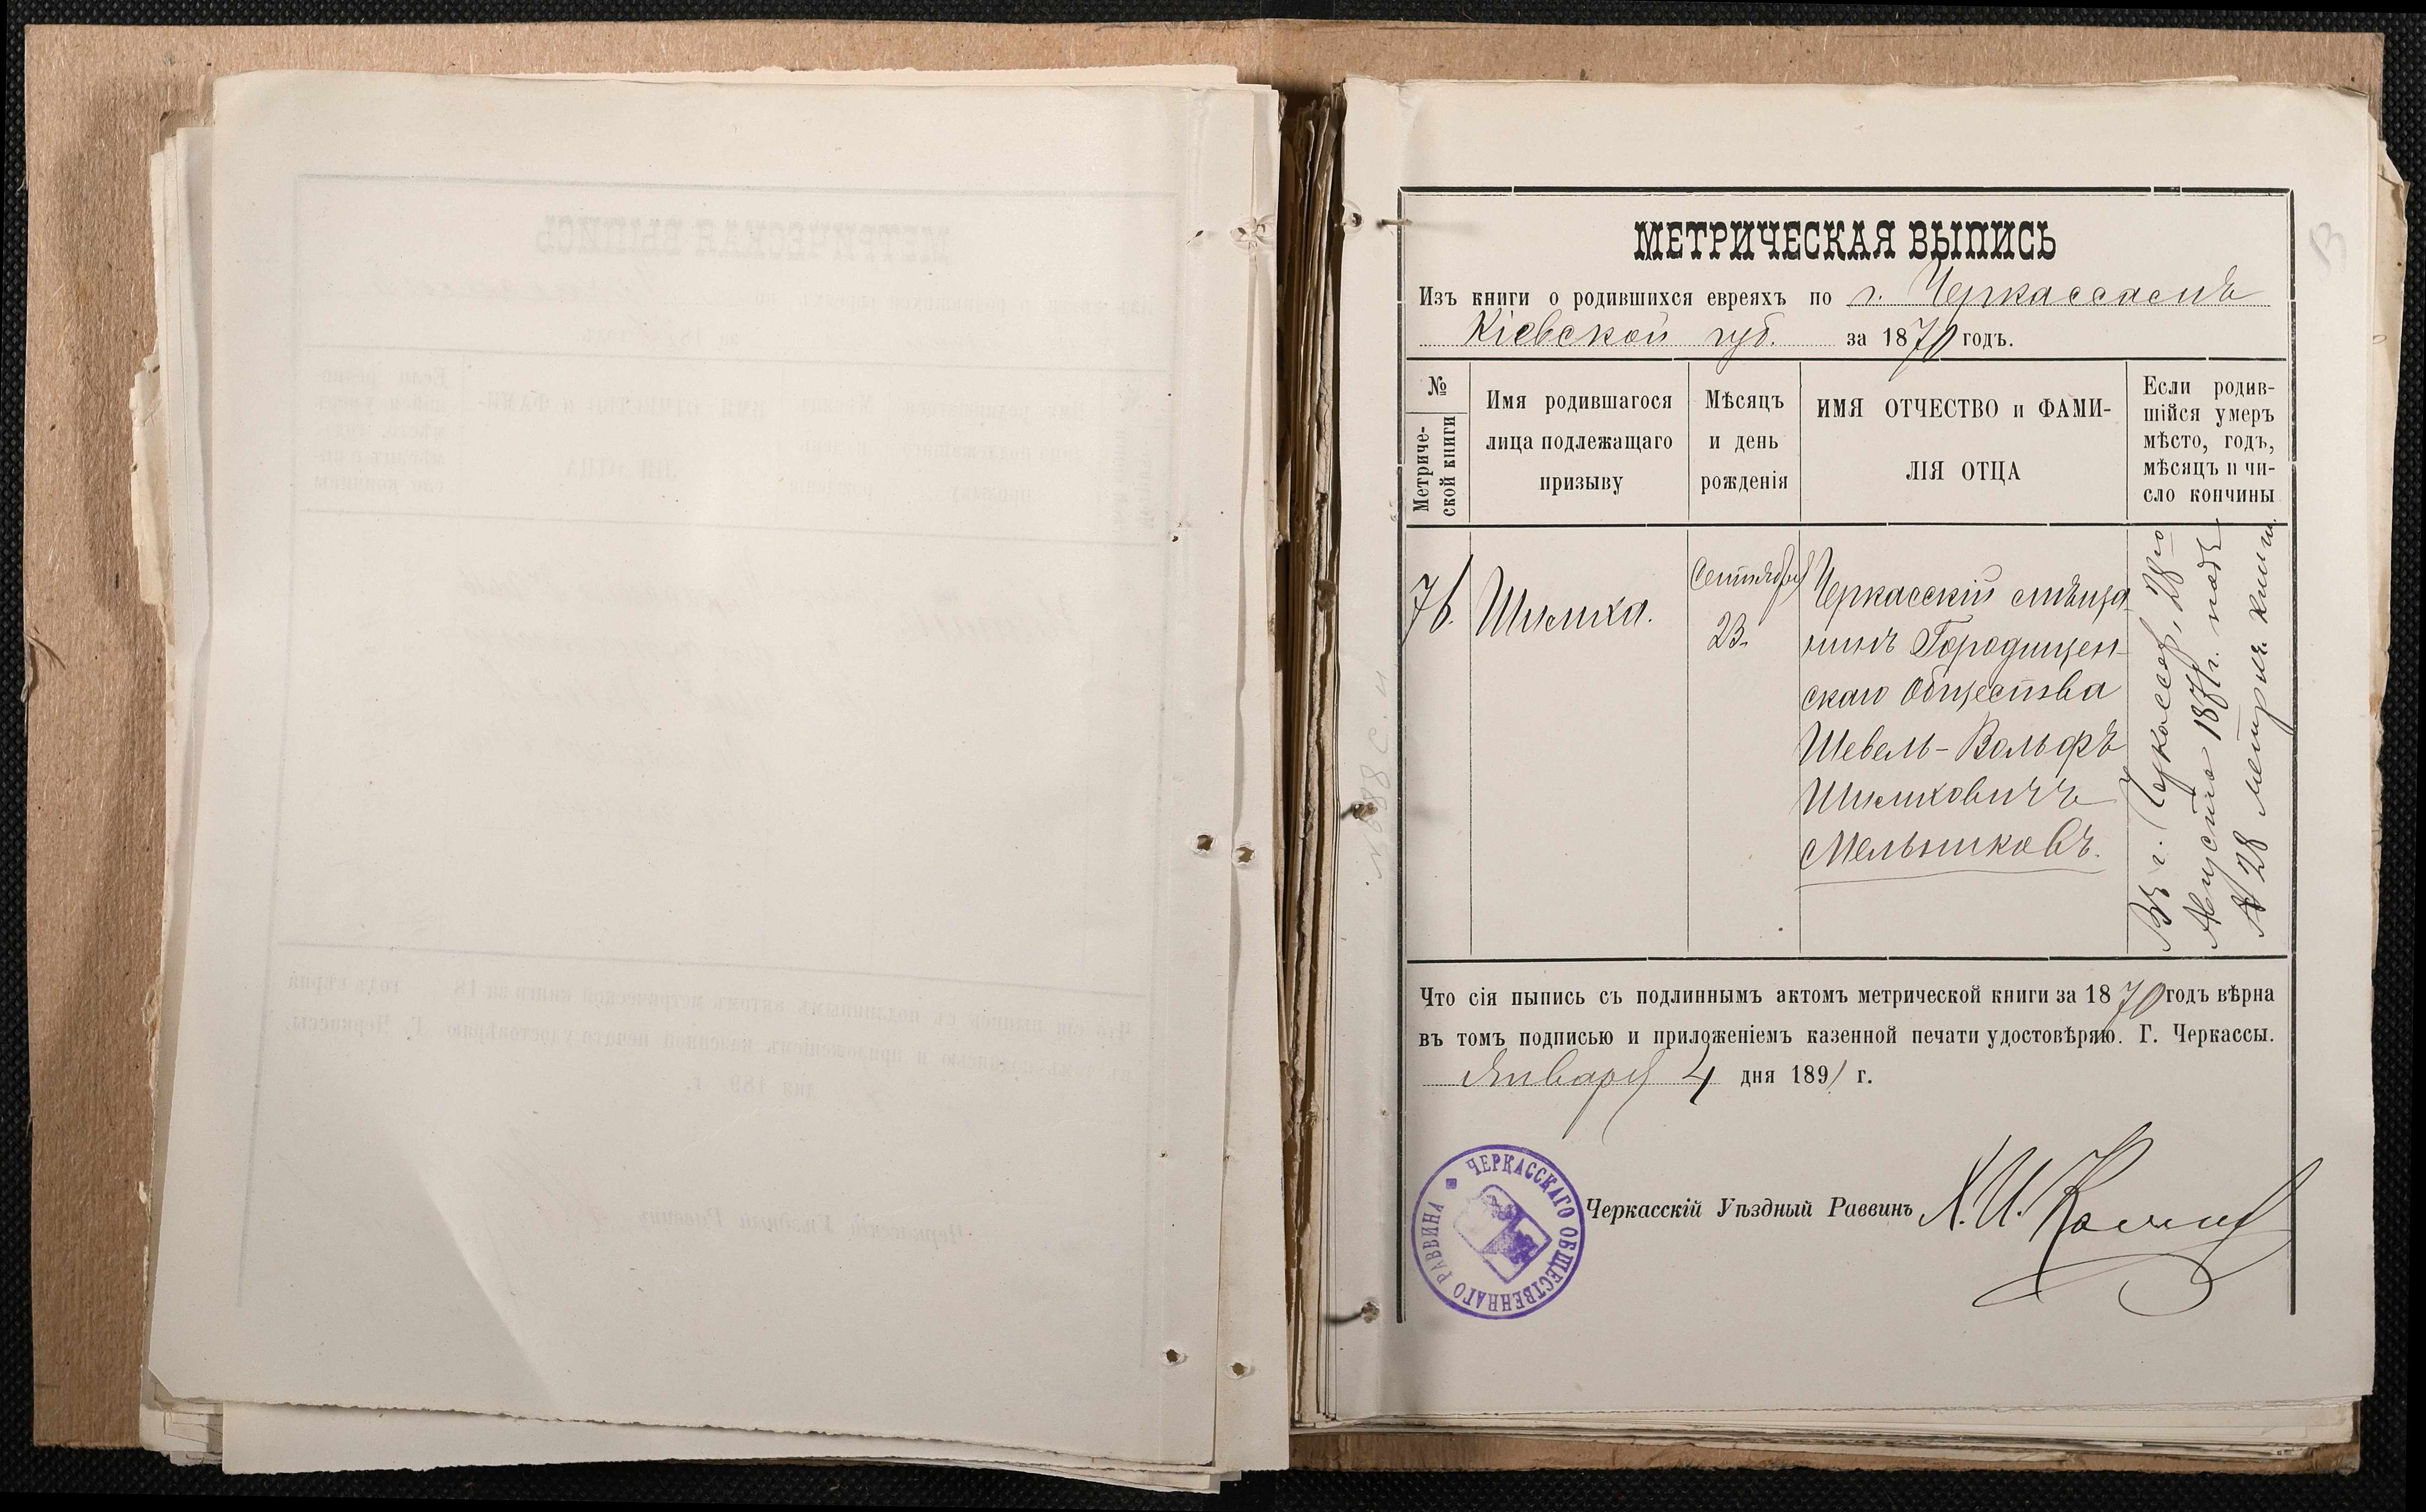 МЕТРИЧЕСКАЯ ВЫПИСЬ
Изъ книги о родившихся евреяхъ по г. Черкассамъ
Кіевской губ. за 1870 годъ.
№
Метриче-
ской книги
Имя родившагося
лица подлежащаго
призыву
Мѣсяцъ
и день
рожденія
ИМЯ ОТЧЕСТВО и ФАМИ-
ЛІЯ ОТЦА
Если родив-
шійся умеръ
мѣсто, годъ,
мѣсяцъ и чи-
сло кончины
76.
Шимха.
Сентября
23.
Черкасскій мѣща
нинъ Городищен-
скаго Общества
Шевель-Вольфъ
Шимховичъ
Мельниковъ.
Въ г. Черкассахъ, 28го
Августа 1871 г. подъ
№ 28 метрич. книги.
Что сія пыпись съ подлиннымъ актомъ метрической книги за 1870 годъ вѣрна
въ томъ подписью и приложеніемъ казенной печати удостовѣряю. Г. Черкассы.
Января 4 дня 1891 г.
Черкасскій Уѣздный Раввинъ Х. И.
ЧЕРКАССКАГО ОБЩЕСТВЕННАГО РАВВИНА